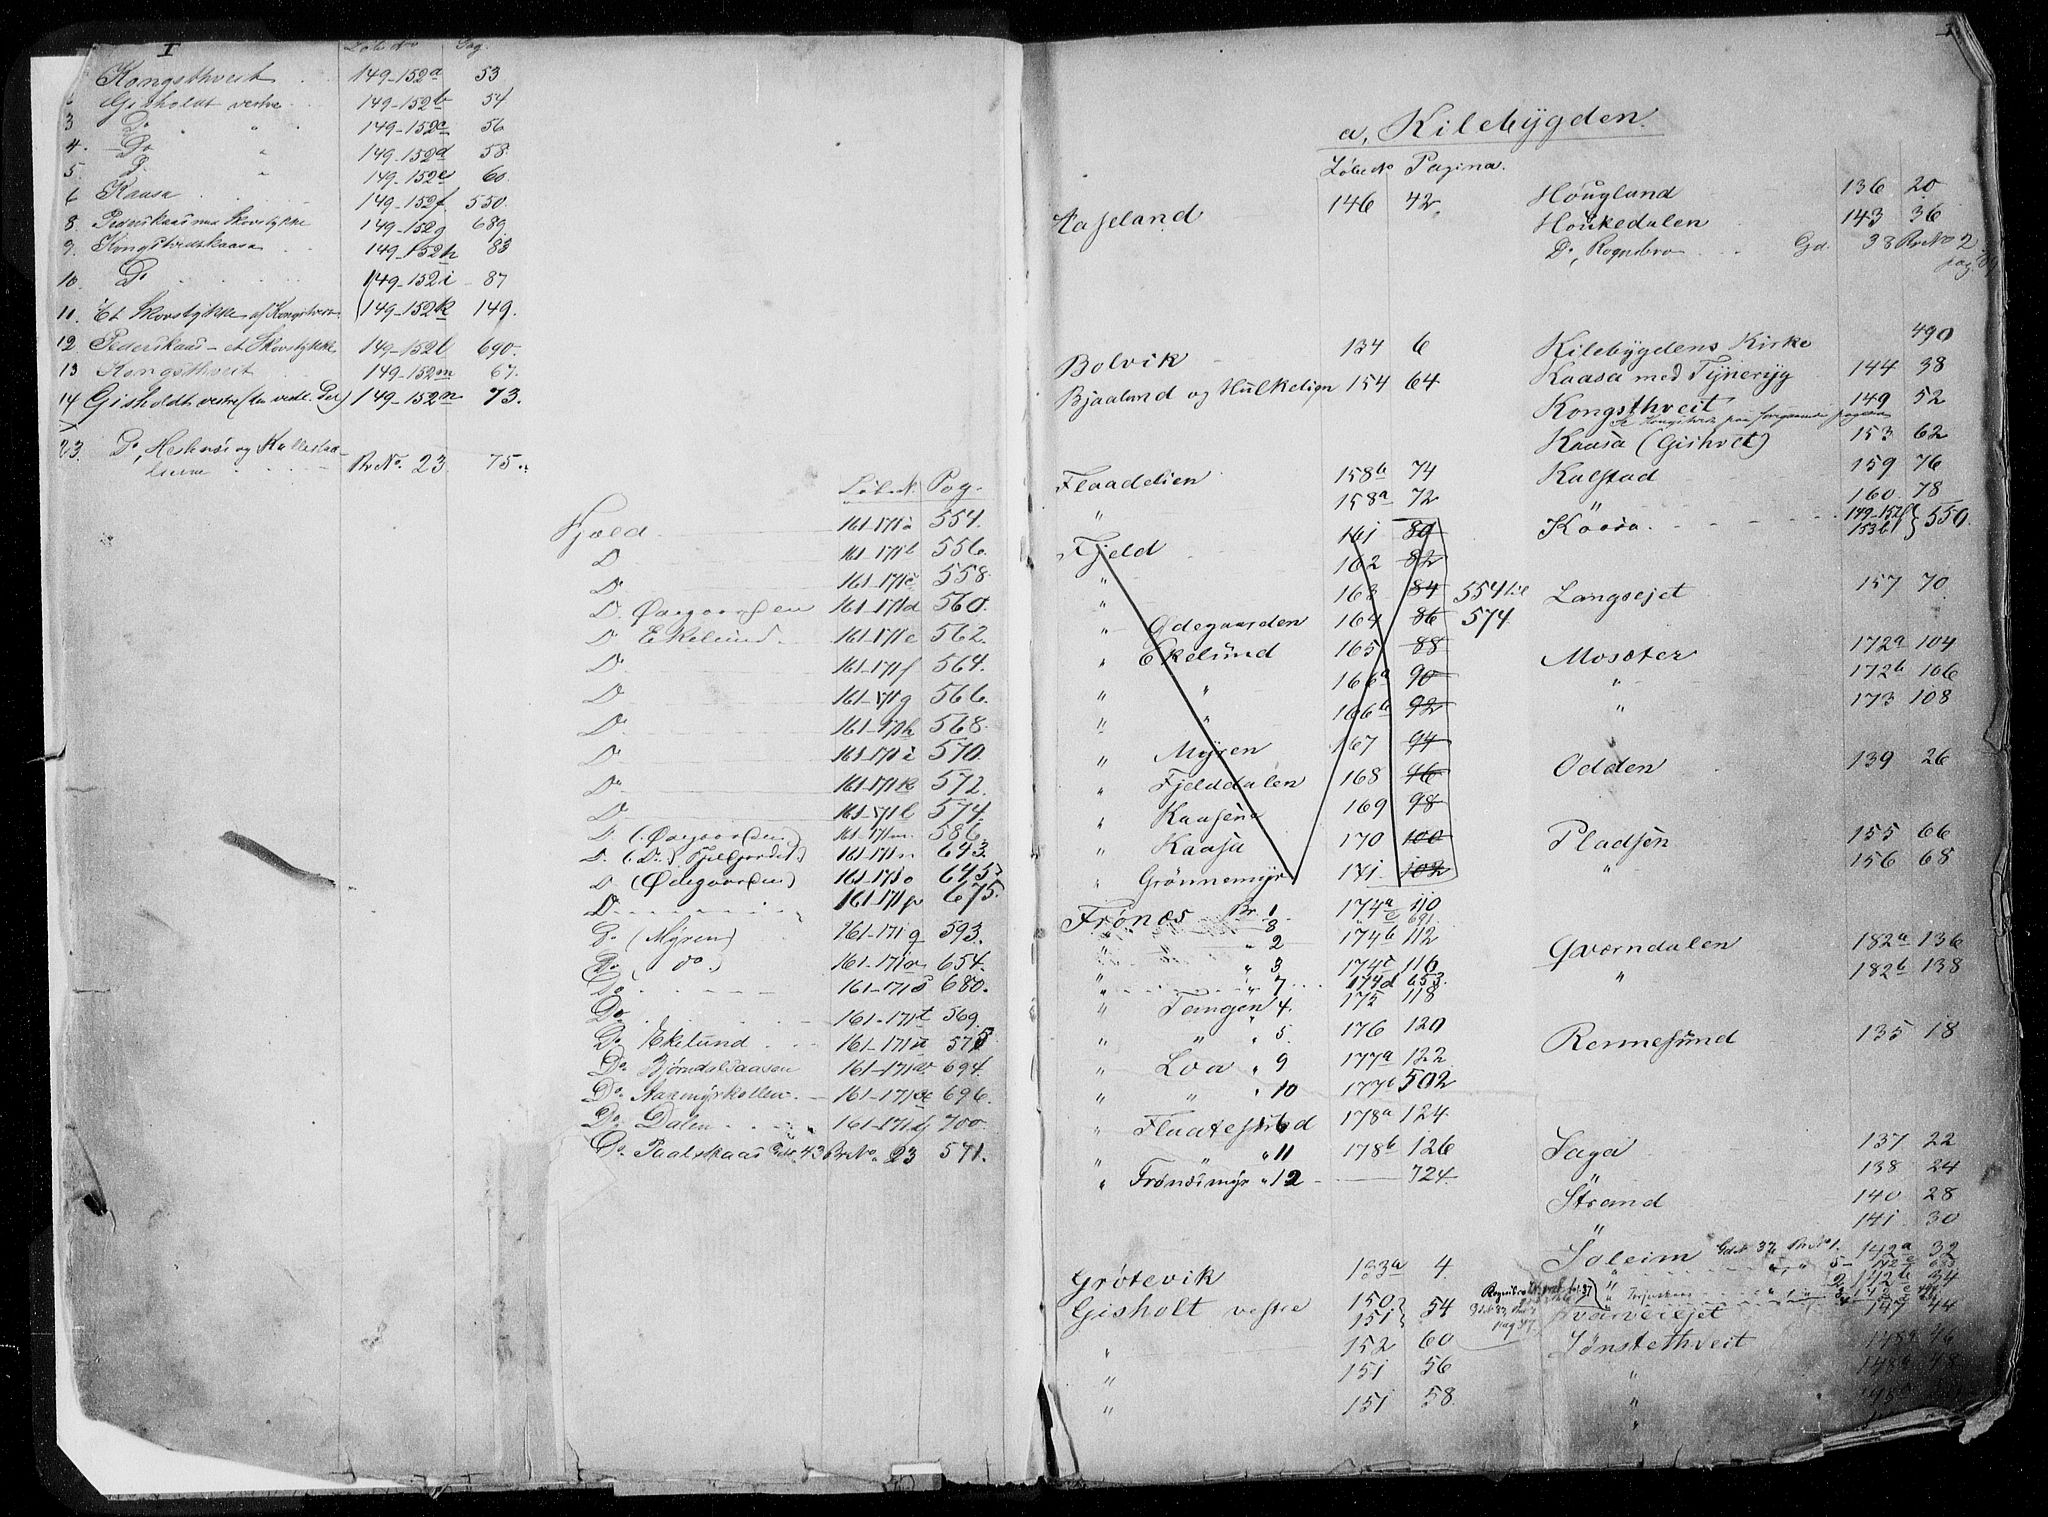 I Löbe No Pag.
Kongsthveit 149-152a 53
Gisholdt vestre 149-152b 54
3 Do 149-152c 56
4. Do 149-152d 58.
5. D. 149-152e 60.
6 Kaasa 149-152f. 550.
8 Pederskaas med Skovstykke 149-152g 689.
9. Kongstvedtkaasa 149-152h 83
10. Do 149-152i 87
11. Et Skovstykke af Kongstveit 149-152k 149.
12. Pederskaas - et Skovstykke 149-152l 690.
13 Kongsthveit 149-152m 67.
14 Gisholdt vestre (den vestl. Del) 149-152n 73.
23. Do, Heskenæs og
Br No. 23. 75.
Löb N. Pag.
Fjeld 161-171a 554.
D 161-171b 556.
D. 161-171c 558.
D. Ødegaarden 161-171d 560.
Do Ekelund 161-171e 562.
Do 161-171f 564.
Do 161-171g 566.
Do 161-171h 568.
Do 161-171i 570.
Do 161-171k 572.
D 161-171l 574.
D. (Ødegaarden) 161-171m. 586.
D. (Do) Fjeldjordet) 161-171n 643.
D (Ødegaarden) 161-171o 645.
D. 161-171p 675.
Do (Myren) 161-171q 593.
Do do.) 161-171r 654.
Do 161-171s 680.
Do 161-171t 569.
Do Ekelund 161-171u 575
Do Bjørndalsaasen 161-171v 694.
Do Aarmyrkollen 161-171x 696.
Do Dalen 161-171y 700.
Do Paalskaas Gno. 43 Br No. 23 571.
a, Kilebygden.
Løbe No Pagina.
Aaseland 146 42
Bolvik 134 6
Bjaaland og Hulkelien 154 64
Flaadelien 158b 74
" 158a 72
Fjeld 161 80
" 162 82
" 163 84 554 til
" Ødegaarden 164 86 574.
" Ekelund 165 88
" " 166a 90
" " 166b 92
" Myren 167 94
" Fjelddalen 168 96
" Kaasene 169 98
" Kaasa 170 100
" Grønnemyr 171 102
Frönæs Br. 1 174a 110
" 8 e 691
" " 2 174b 112
" " 3 174c 116
" " 7 174d 653.
" Tangen 4. 175 118
" " 5. 176 120
" Loa " 9 177a 122
" " " 10 177b 502
" Flaatesund 6 178a 124.
" " " 11 178b 126
" Frönæsmyr " 12 724.
Grøtevik 133a 4.
Gisholt vestre 150 } 54
151
" 152 60
" 151 56
" 151 58.
Hougland 136 20
Houkedalen 143 36
Do, Rognsbro Gd. 38 Br No 2
pag.
Kilebygdens Kirke 490
Kaasa med Tyneryg 144 38
Kongsthveit 149 52
Kaasa (Gishvet) 153 62
Kalstad 159 76
" 160 78
Kaasa 149-152f 153b } 550.
Langsejet 157 70
Mosæter 172a 104
" 172b 106
" 173 108
Odden 139 26
Pladsen 155 66
" 156 68
Qværndalen 182a 136
" 182b 138
Rennesund 135 18
Saga 137 22
" 138 24
Strand 140 28
" 141 30
Soleim Gd No 37 Br No 1. 142a 32
" 5
" 2 142b 34
Sværvejet 147 44
Tønstethveit 148a 46
"
"
"